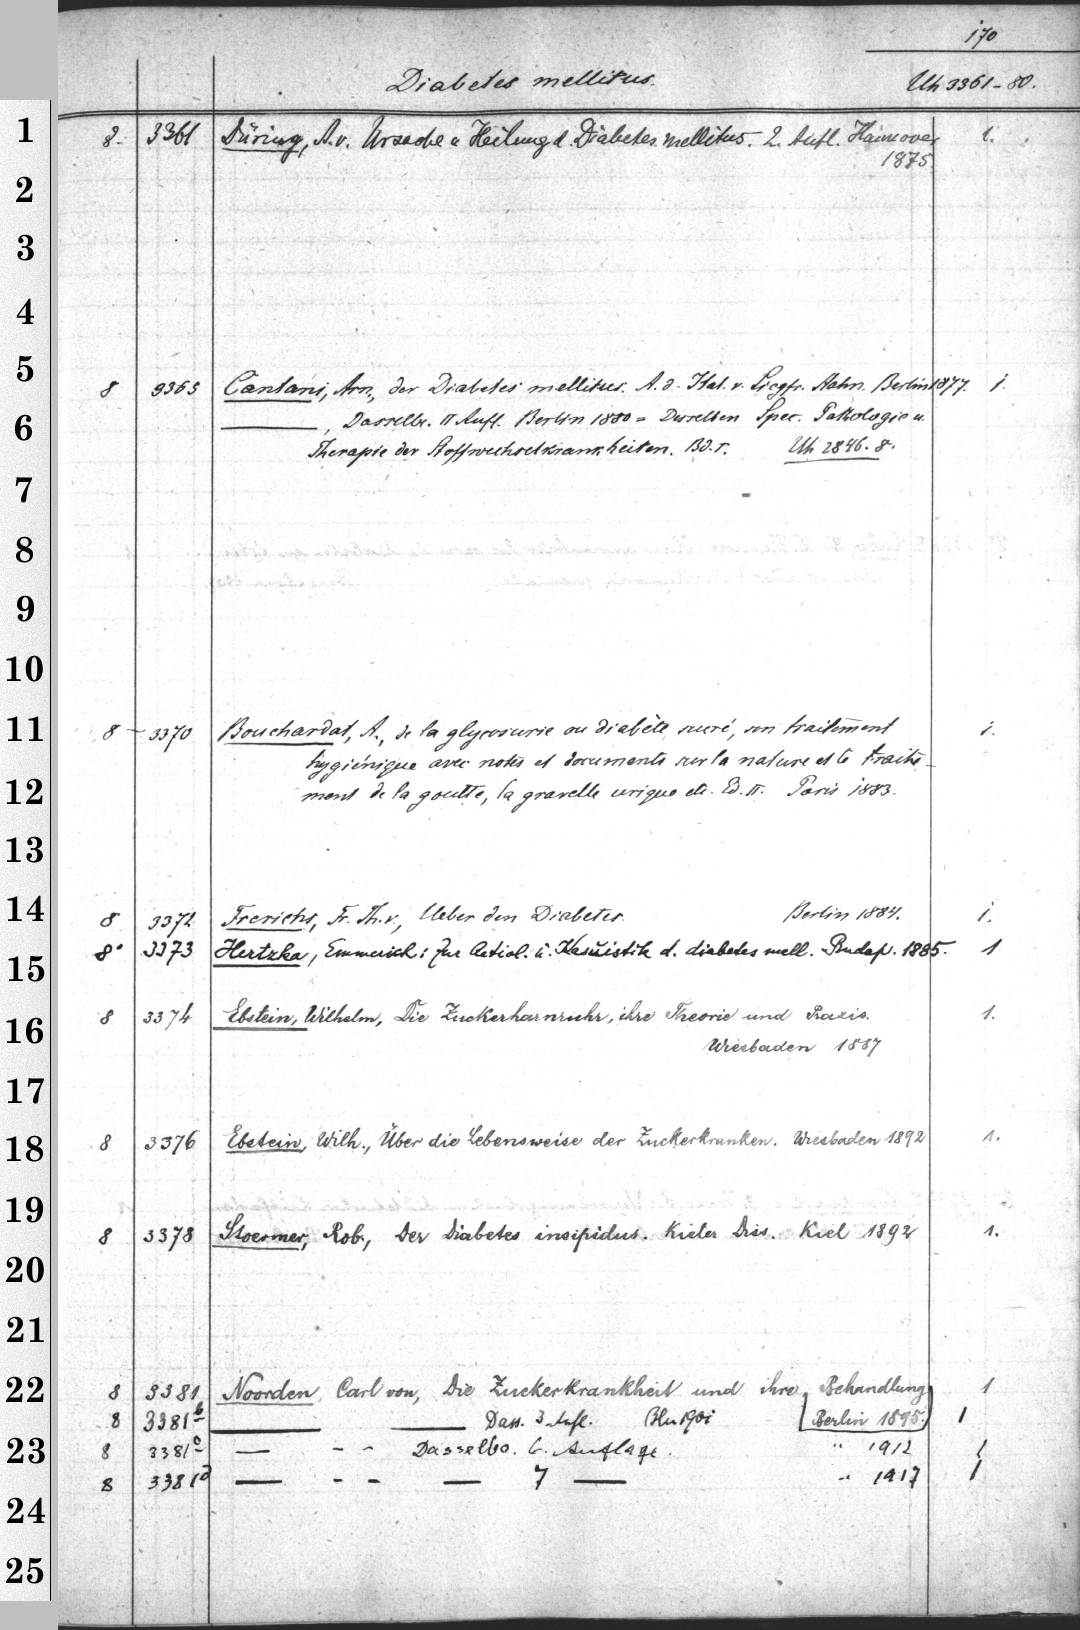 170
Diabetes mellitus. Uh 3361-80.
1
8. 3361 Düring, A. v. Ursache u Heilung d. Diabetes mellitus. 2. Aufl. Hannover 1.
1875.
2
3
4
5
8 3365 Cantani, Arn., der Diabetes mellitus. A. d. Ital. v. Siegfr. Hahn. Berlin 1877. 1.
6
, Dasselbe. II Aufl. Berlin 1880 = Desselben Spec. Pathologie u.
Therapie der Stoffwechselkrankheiten. Bd. I. Uh 2846. 8.
7
8
9
10
11
8 3370 Bouchardat, A., de la glycosurie ou diabète sucré, son traitement 1.
hygiénique avec notes et documents sur la nature et le traite-
12
ment de la goutte, la gravelle urique etc. Ed. II. Paris 1883.
13
14
8 3372 Frerichs, Fr. Th. v., Ueber den Diabetes. Berlin 1884. 1.
15
8° 3373 Hertzka, Emmerich: Zur Aetiol. u. Kasuistik d. diabetes mell. Budap. 1885. 1
16
8 3374 Ebstein, Wilhelm, Die Zuckerharnruhr, ihre Theorie und Praxis. 1.
Wiesbaden 1887
17
18
8 3376 Ebstein, Wilh., Über die Lebensweise der Zuckerkranken. Wiesbaden 1892 1.
19
8 3378 Stoermer, Rob., Der Diabetes insipidus. Kieler Diss. Kiel 1892 1.
20
21
22
8 3381 Noorden, Carl von, Die Zuckerkrankheit und ihre Behandlung 1
8 3381 b — — Dass. 3 Aufl. Bln 1901 Berlin 1895. 1
23
8 3381 c — - - Dasselbe. 6. Auflage. " 1912 1
8 3381 d — - - — 7 — " 1917 1
24
25